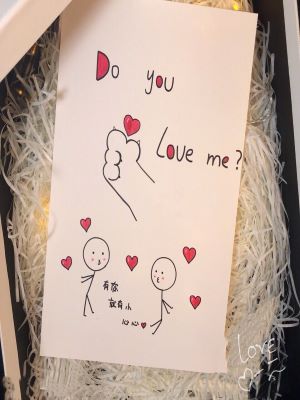 Do you
Love me?
有你
就有小
心心
LOVE